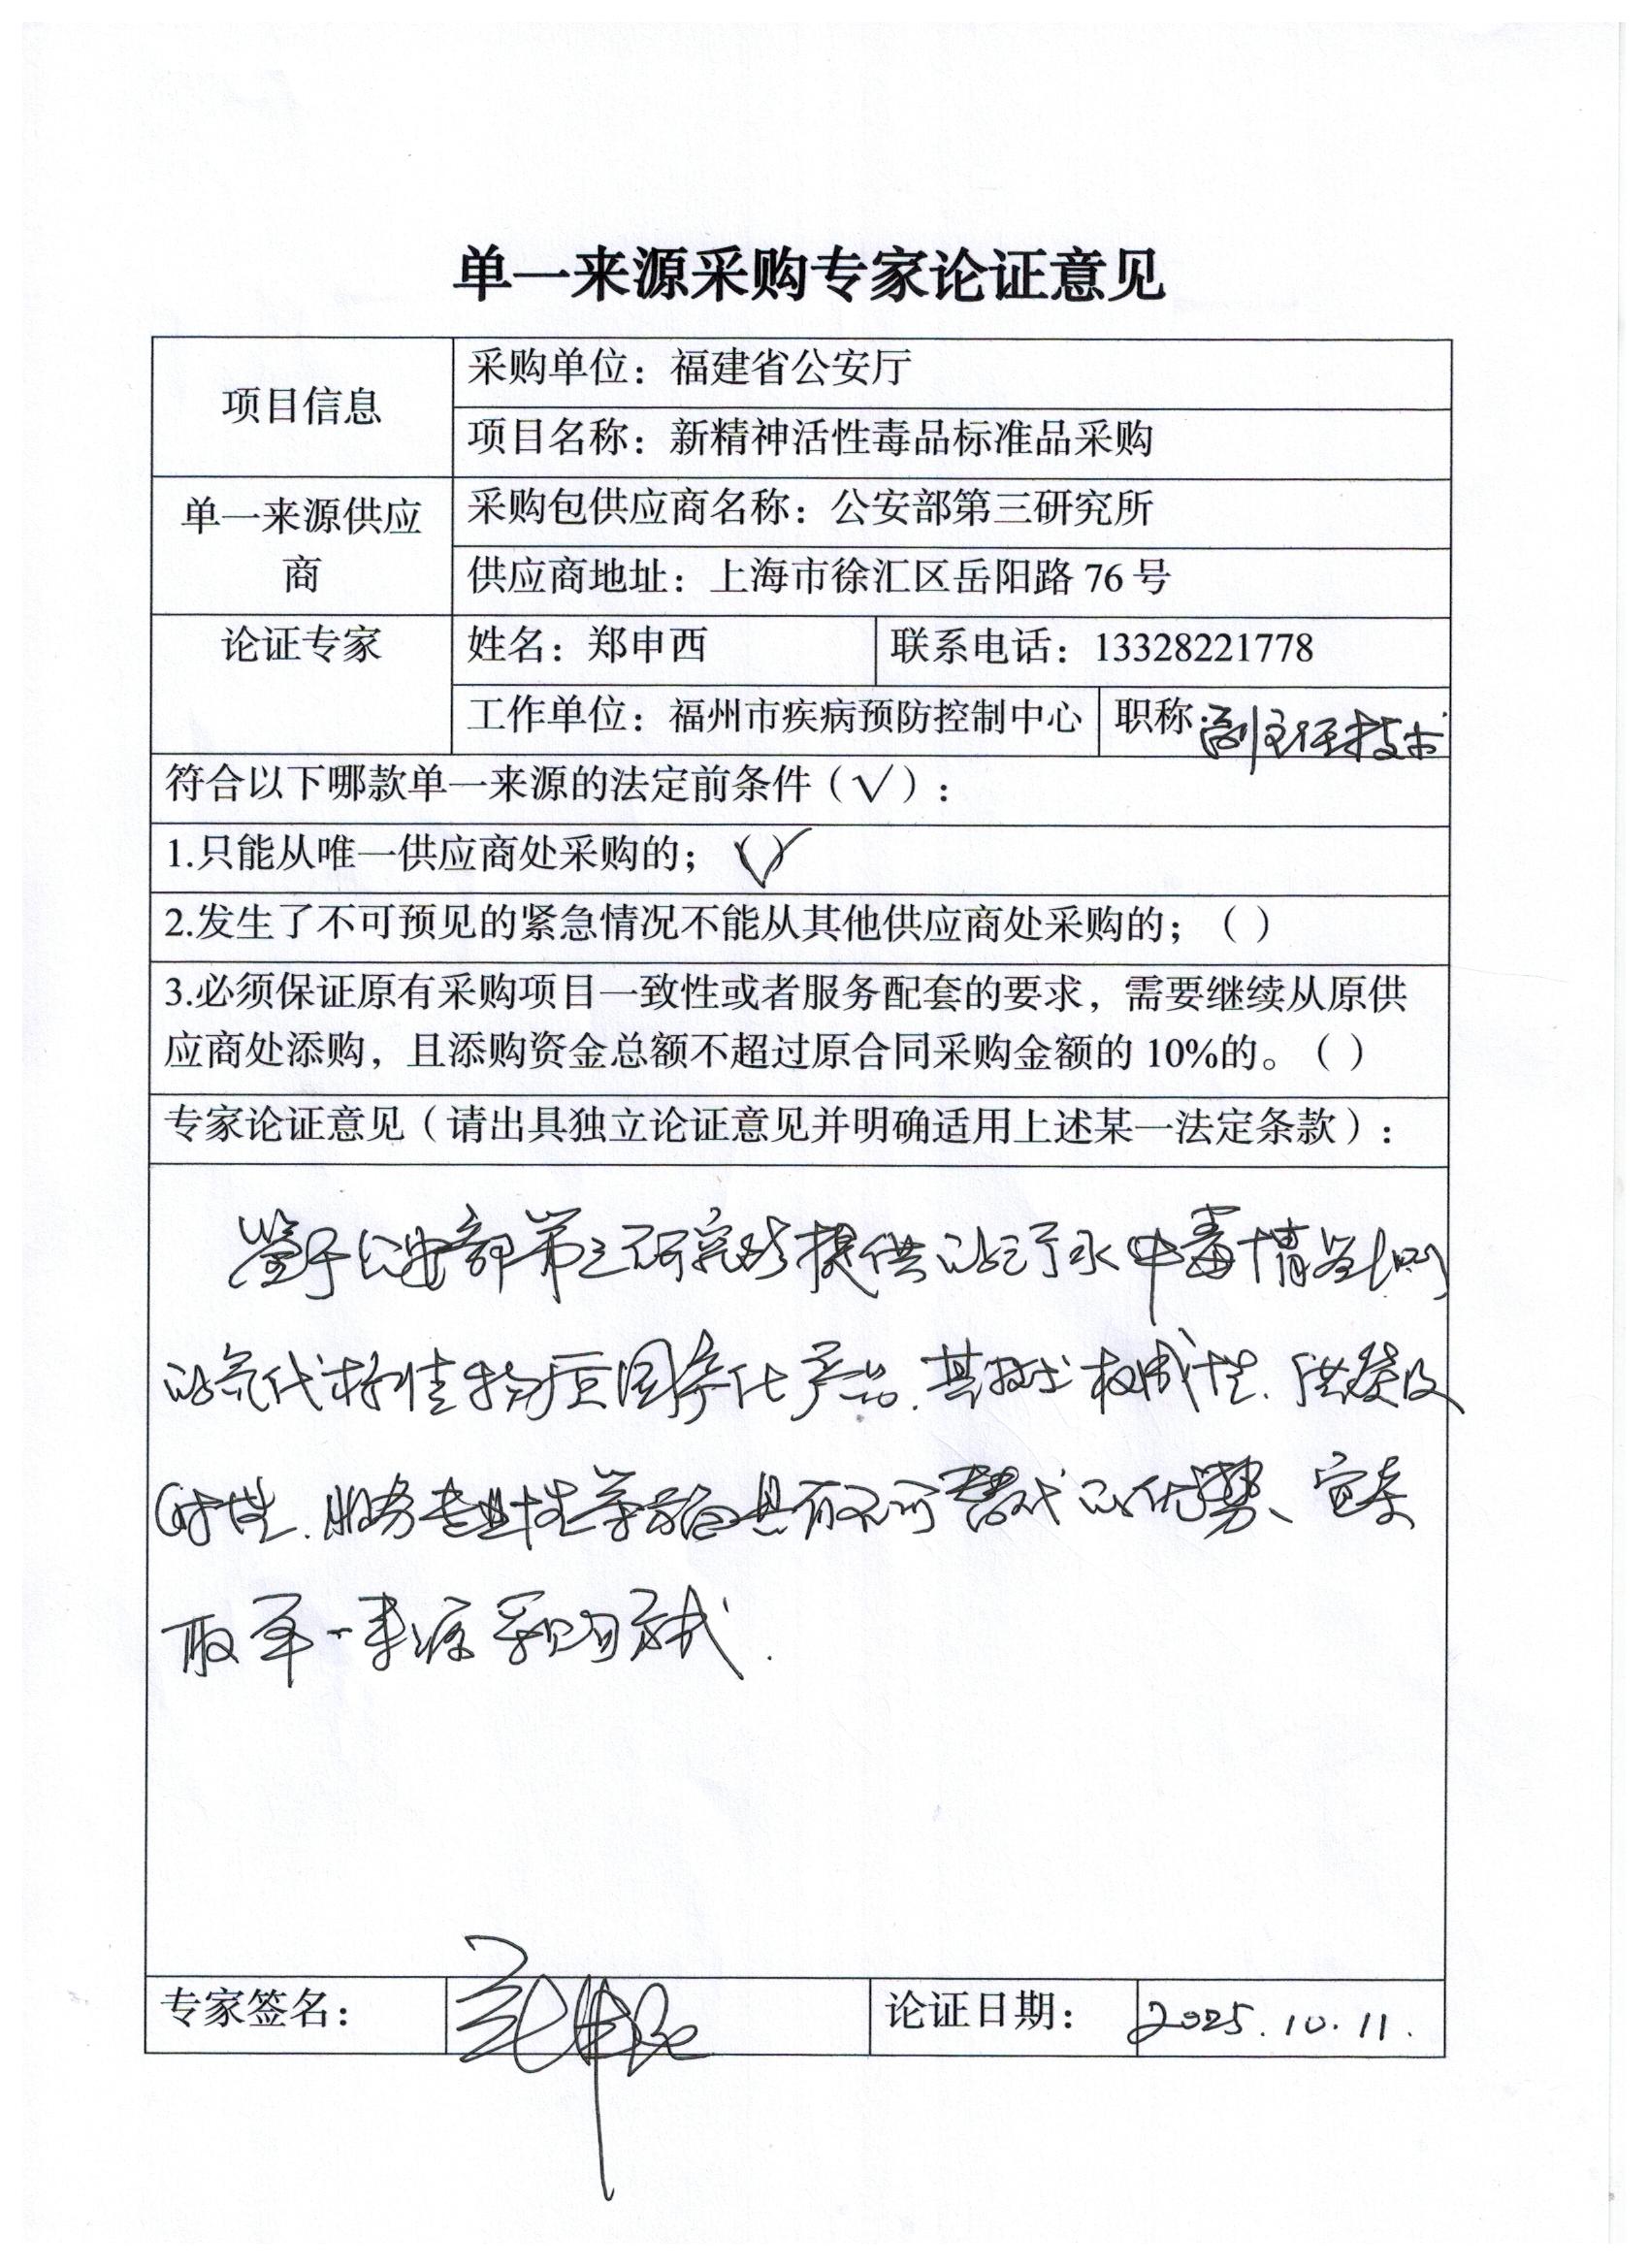 单一来源采购专家论证意见
项目信息
采购单位：福建省公安厅
项目名称：新精神活性毒品标准品采购
单一来源供应
商
采购包供应商名称：公安部第三研究所
供应商地址：上海市徐汇区岳阳路 76 号
论证专家
姓名：郑申西
联系电话：13328221778
工作单位：福州市疾病预防控制中心
职称：副主任技术
符合以下哪款单一来源的法定前条件（√）：
1.只能从唯一供应商处采购的；（√）
2.发生了不可预见的紧急情况不能从其他供应商处采购的；（ ）
3.必须保证原有采购项目一致性或者服务配套的要求，需要继续从原供
应商处添购，且添购资金总额不超过原合同采购金额的 10%的。（ ）
专家论证意见（请出具独立论证意见并明确适用上述某一法定条款）：
鉴于公安部第三研究所提供的污水中毒情监测
的氘代标准物质国产化产品、其技术权威性、供货及
时性、服务专业性等方面具有不可替代的优势、宜采
取单一来源采购方式.
专家签名：
郑申西
论证日期：
2025.10.11.